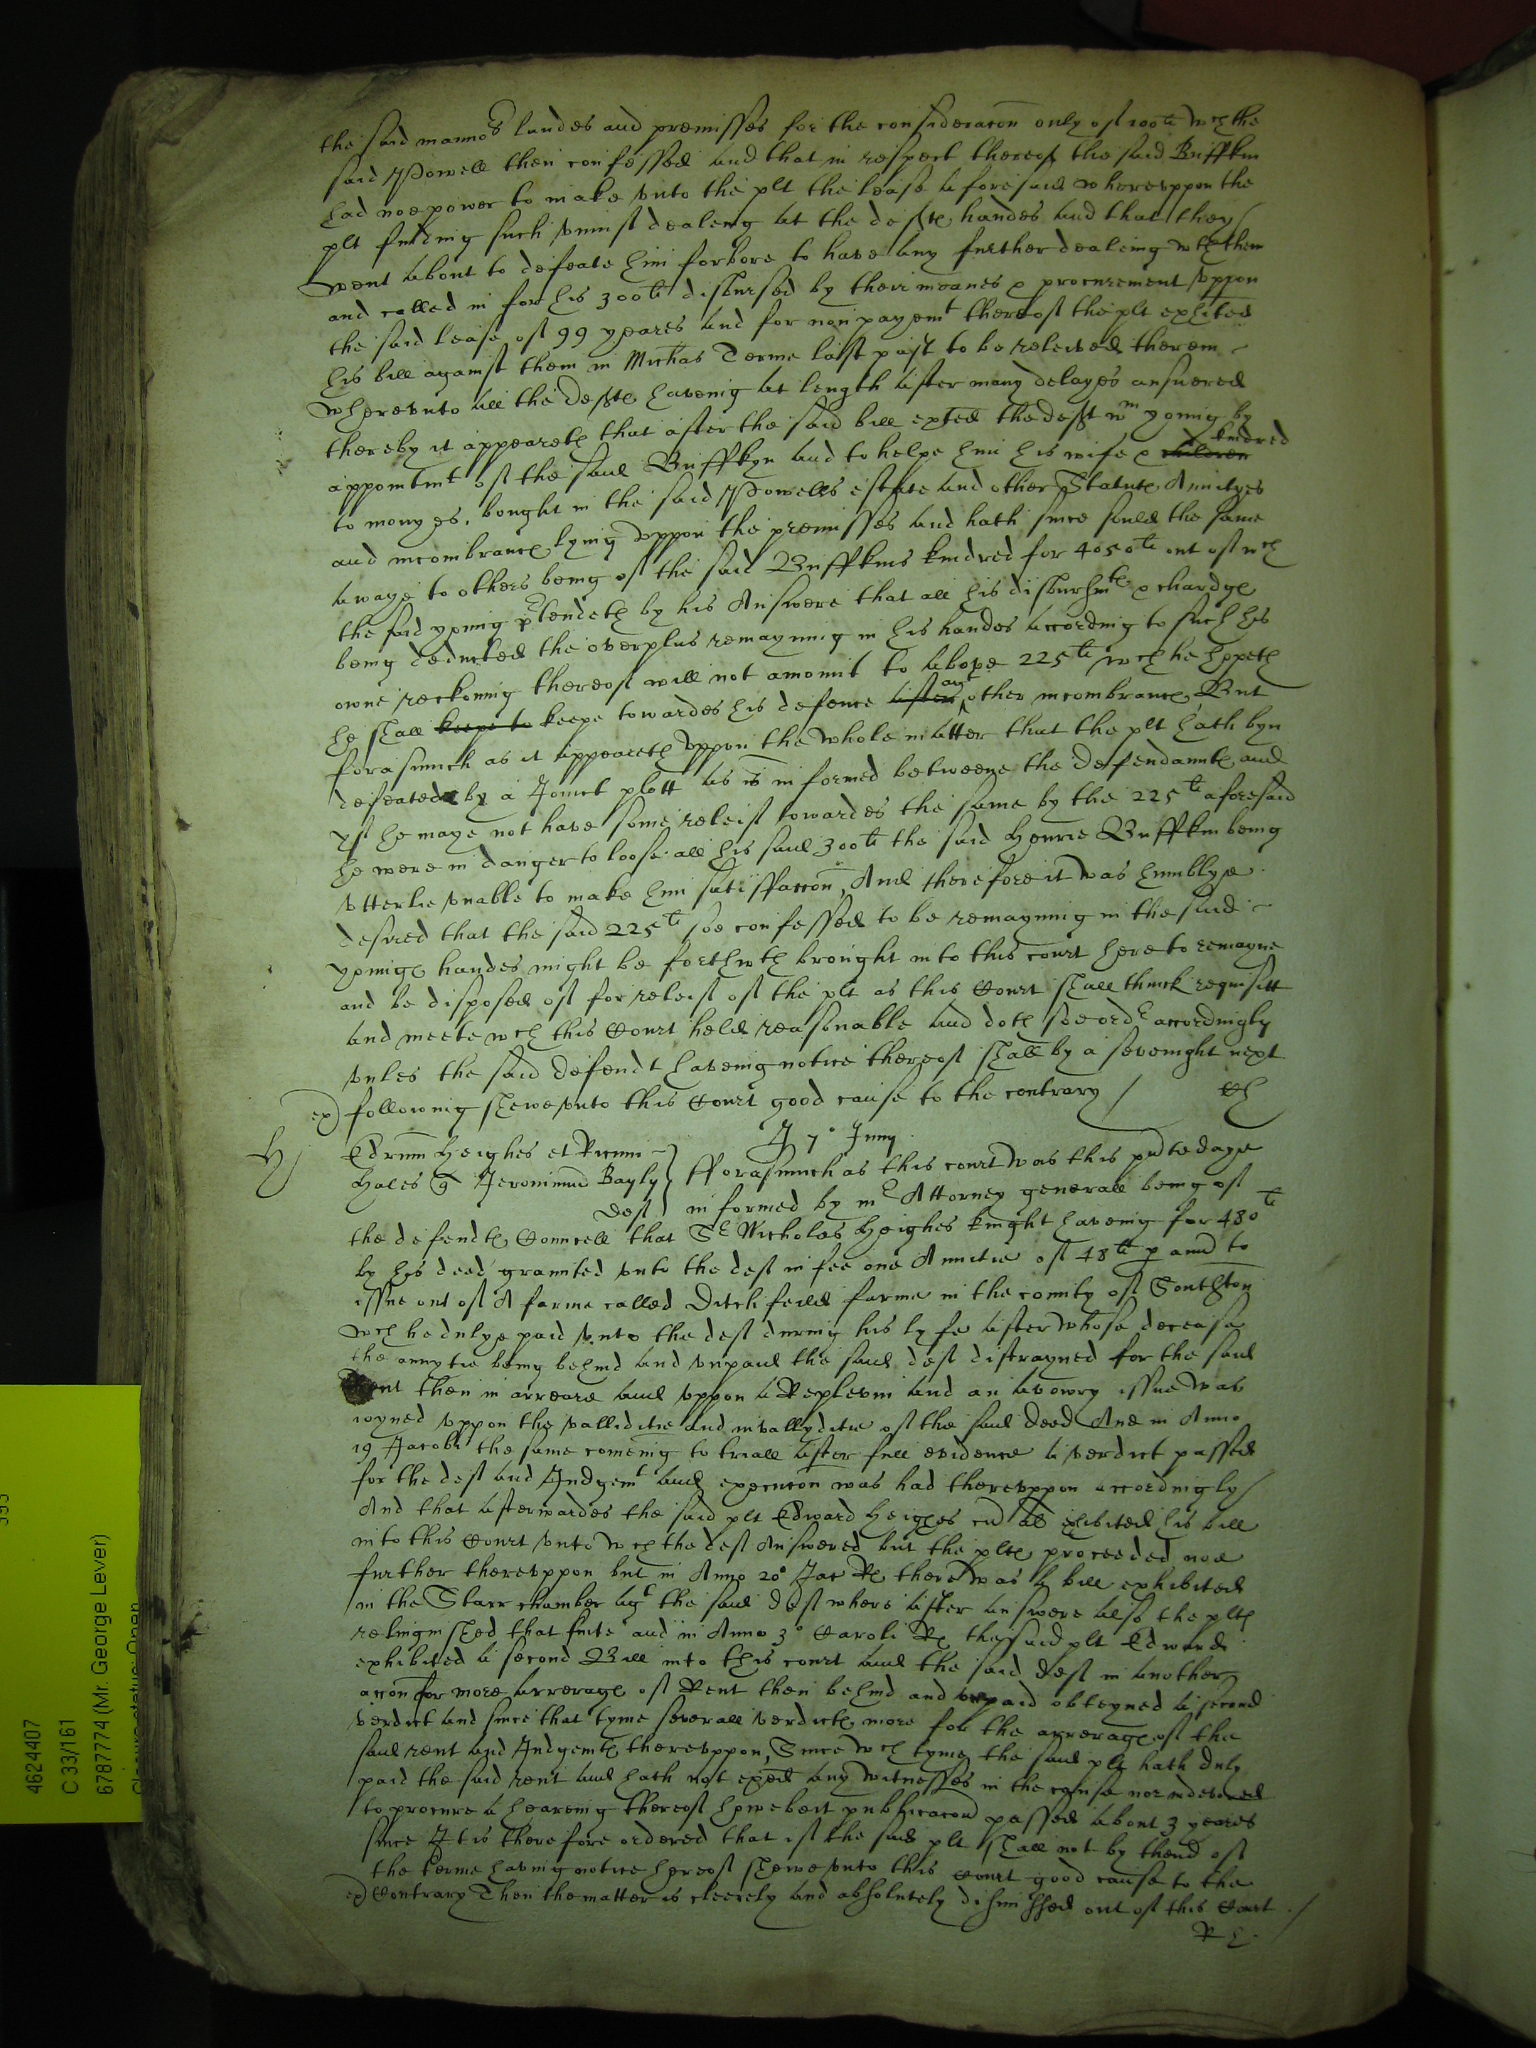 the said mannors landes and premisses for the consideracon only of 100li wch the
said Powell then confessed and that in respect thereof the said Buffkin
had noe power to make unto the plt the lease aforesaid whereuppon the
plt finding such uniust dealeing at the defts handes and that they
went about to defeate him forbore to have any further dealeing wth them
and called in for his 300li disbursed by their meanes & procurement uppon
the said lease of 99 yeares and for non paymt thereof the plt exhited
his bill against them in Michas Terme last past to be releived therein
whereunto all the defts haveing at length after many delayes answered
thereby it appeareth that after the said bill exhited the deft Wm Yonng by
appointmt of the said Buffkyn and to helpe him his wife & children kindred
to monyes, bought in the said Powells estate and other Statuts Anuityes
and incombrances lying uppon the premisses and hath since sould the same
awaye to others being of the said Buffkins kindred for 4050li out of wch
the said yonng ptendeth by his Answere that all his disbursmts & chardges
being deducted the overplus remayning in his handes according to such his
owne reckoning thereof will not amount to above 225li wch he hopeth
he shall keepe to keepe towardes his defence after agt other incombrances But
forasmuch as it appeareth uppon the whole matter that the plt hath byn
defeated by a Joinct plott as is informed betweene the defendants and
yf he maye not have some releif towardes the same by the 225li aforesaid
he were in danger to loose all his said 300li the said Henrie Buffkin being
utterlie unable to make him satisfaccon, And therefore it was humblye
desired that the said 225li soe confessed to be remayning in the said
yonngs handes might be forthwth brought into this court here to remayne
and be disposed of for releif of the plt as this Court shall thinck requisitt
and meete wch this Court held reasonable and doth soe order accordingly
unles the said defendt haveing notice thereof shall by a sevenight next
ex) following shewe unto this Court good cause to the contrary /
H)
Jov 7o Junij
Edrum Heighes et
Hales q Jeronimu Bayly
deft
fforasmuch as this court was this pnte daye
informed by mr Attorney generall being of
the defendts Councell that Sr Nicholas Heighes knight haveing for 480li
by his deed graunted unto the deft in fee one Anuitie of 48li p annu to
issue out of A farme called Ditchfeild farme in the county of Southton
wch he dulye paid unto the deft during his lyfe after whose decease
the annytie being behind and unpaid the said deft distrayned for the said
Rent then in arreare and uppon a Replevin and an avowry issue was
ioyned uppon the validitie and invallyditie of the said deed And in Anno
19 Jacobi the same comeing to triall after full evidence a verdict passed
for the deft and Judgemt and execucon was had thereuppon accordingly /
And that afterwardes the said plt Edward Heighes cu al exhibited his bill
into this Court unto wch the deft Answered but the plts proceeded noe
further thereuppon but in Anno 20o Jac Rs there was a bill exhibited
in the Starr chamber agt the said deft where after answere also the plts
relinguished that suite and in Anno 3o Caroli Rs the said plt Edward
exhibited a second Bill into this court and the said deft in another
accon for more arrerages of Rent then behind and unpaid obteyned a second
verdict and since that tyme severall verdicts more for the arrerages of the
said rent and Judgemts thereuppon, Since wch tyme the said plt hath duly
paid the said rent and hath not exed any witnesses in the cause nor indevored
to procure a heareing thereof howebeit publicacon passed about 3 yeares
since It is therefore ordered that if the said plt shall not by thend of
the terme having notice hereof shewe unto this Court good cause to the
ex) Contrary Then the matter is cleerely and absolutely dismissed out of this Court /
4624407
C 33/161
6787774 (Mr. George Lever)
Closure status: Open